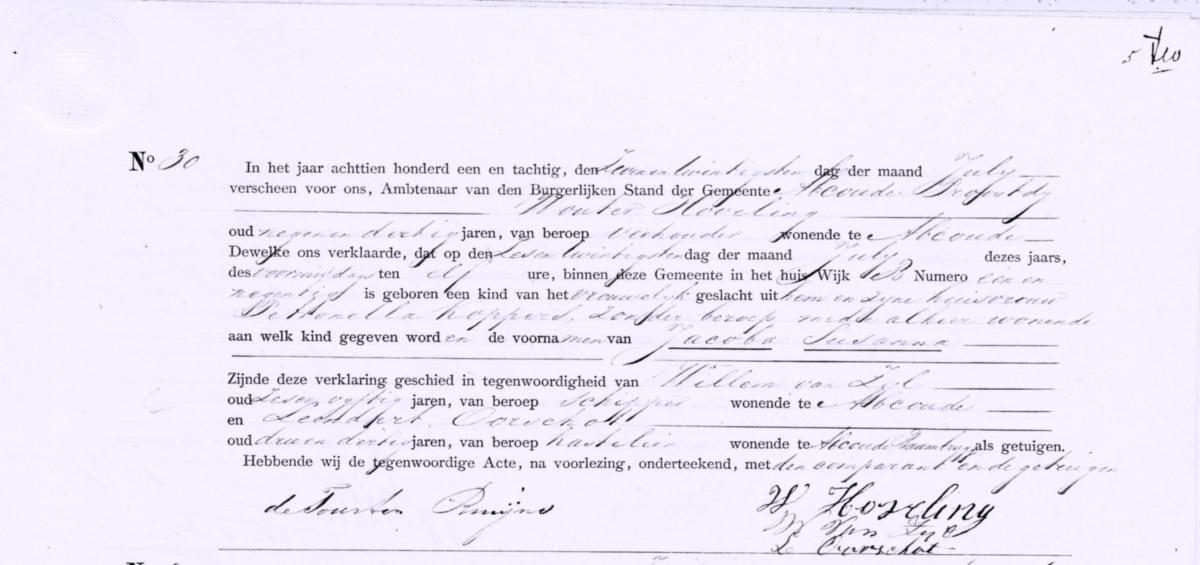 5
No 30
In het jaar achttien honderd een en tachtig, den Zevenentwintigsten dag der maand July
verscheen voor ons, Ambtenaar van den Burgerlijken Stand der Gemeente Abcoude Proostdy
Wouter Hoveling
oud negenendertig jaren, van beroep veehouder wonende te Abcoude
Dewelke ons verklaarde, dat op den Zesentwintigsten dag der maand July dezes jaars,
des voormiddags ten elf ure, binnen deze Gemeente in het huis Wijk B Numero een en
negentig is geboren een kind van het vrouwelijk geslacht uit hem en zijne huisvrouw
Petronella Koppers, zonder beroep mede alhier wonende
aan welk kind gegeven worden de voornamen van Jacoba Susanna
Zijnde deze verklaring geschied in tegenwoordigheid van Willem van Zyl
oud Zesenvyftig jaren, van beroep schipper wonende te Abcoude
en Leendert Oorschot
oud drieendertig jaren, van beroep kastelein wonende te Abcoude Baambrugge als getuigen.
Hebbende wij de tegenwoordige Acte, na voorlezing, onderteekend, met den comparant en de getuigen
W Hoveling
W Van Zyl
L Oorschot